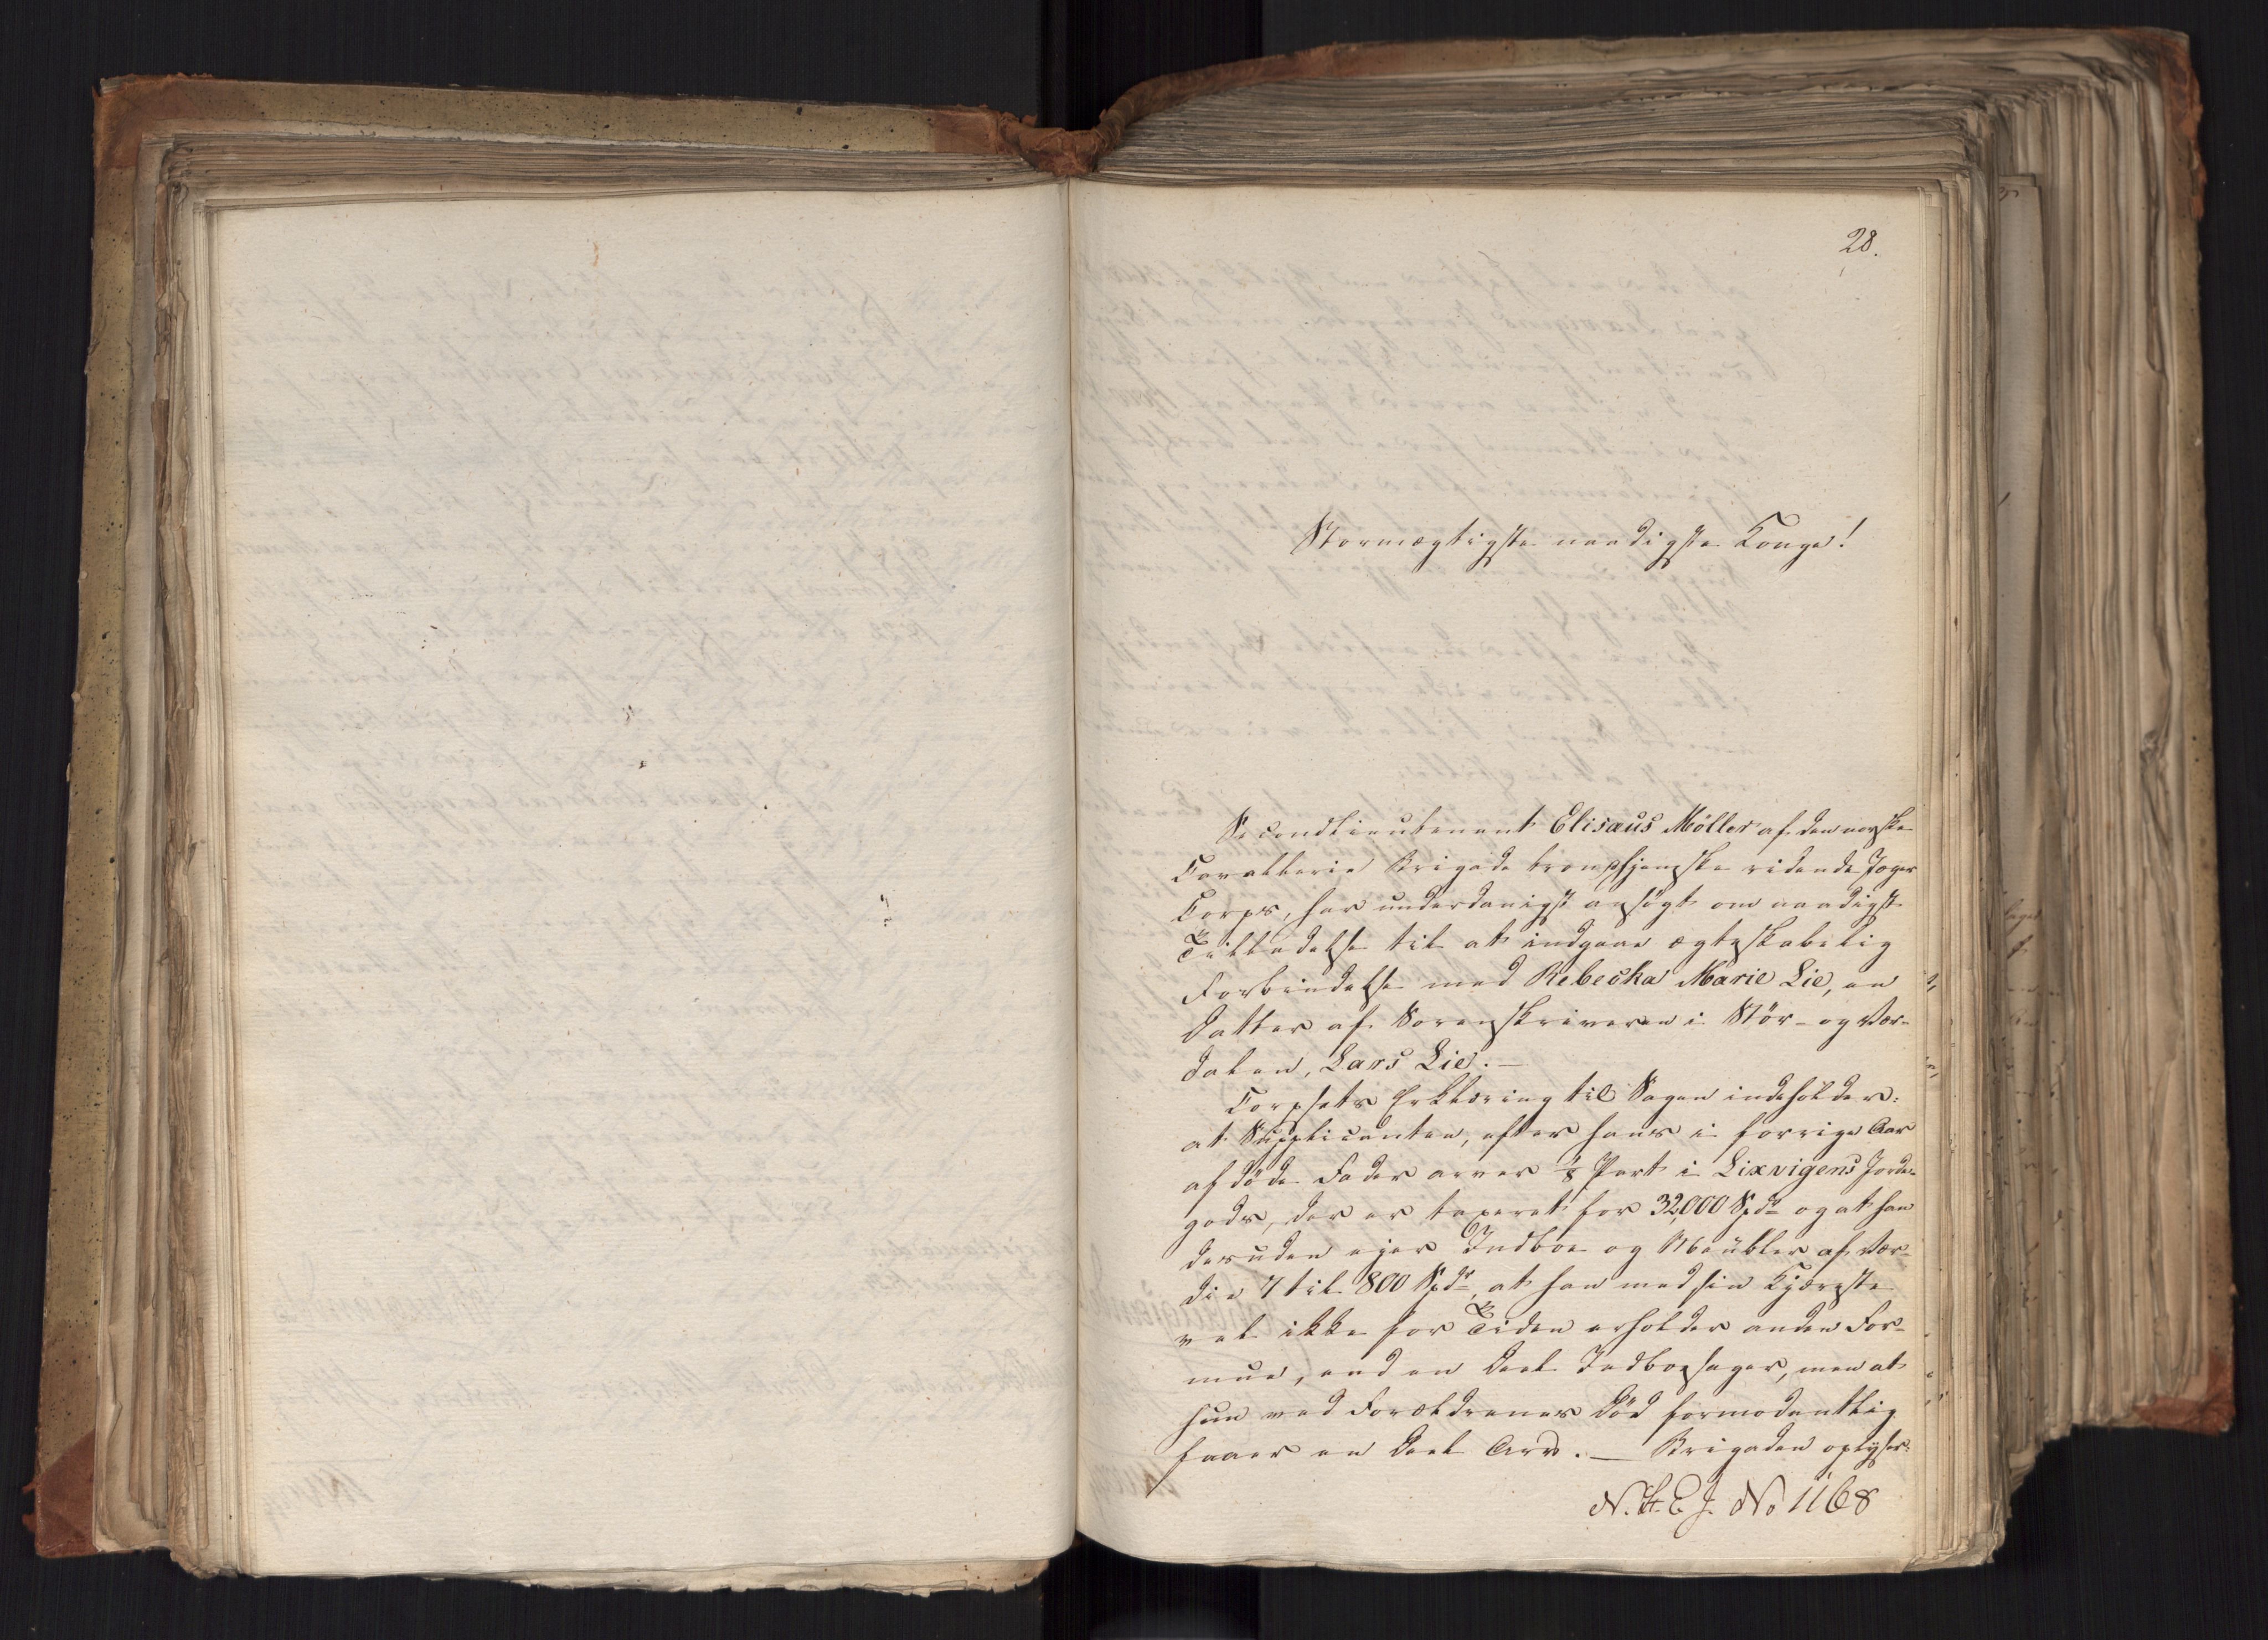 28.
Stormægtigste naadigste Konge!
Secondlieutenant Elisæus Möller af den norske
Cavallerie Brigade trondhjemske ridende Jæger
Corps, har underdanigst ansögt om naadigst
Tilladelse til at indgaae ægteskabelig
Forbindelse med Rebecka Marie Lie, en
Datter af Sorenskriveren i Stör- og Vær-
dalen, Lars Lie. —
Corpsets Erklæring til Sagen indeholder:
at Supplicanten, efter hans i forrige Aar
afdöde Fader arver 1/8 Part i Lixvigens Jorde-
gods, der er taxeret for 32,000 Spd og at han
desuden ejer Indboe og Meubler af Vær-
die 7 til 800 Spdr, at han med sin Kjæreste
vel ikke for Tiden erholder anden For-
mue, end en Deel Indboesager, men at
hun ved Forældrenes Död formodentlig
faaer en Deel Arv. — Brigaden oplyser:
N. H. E. J. No 1168